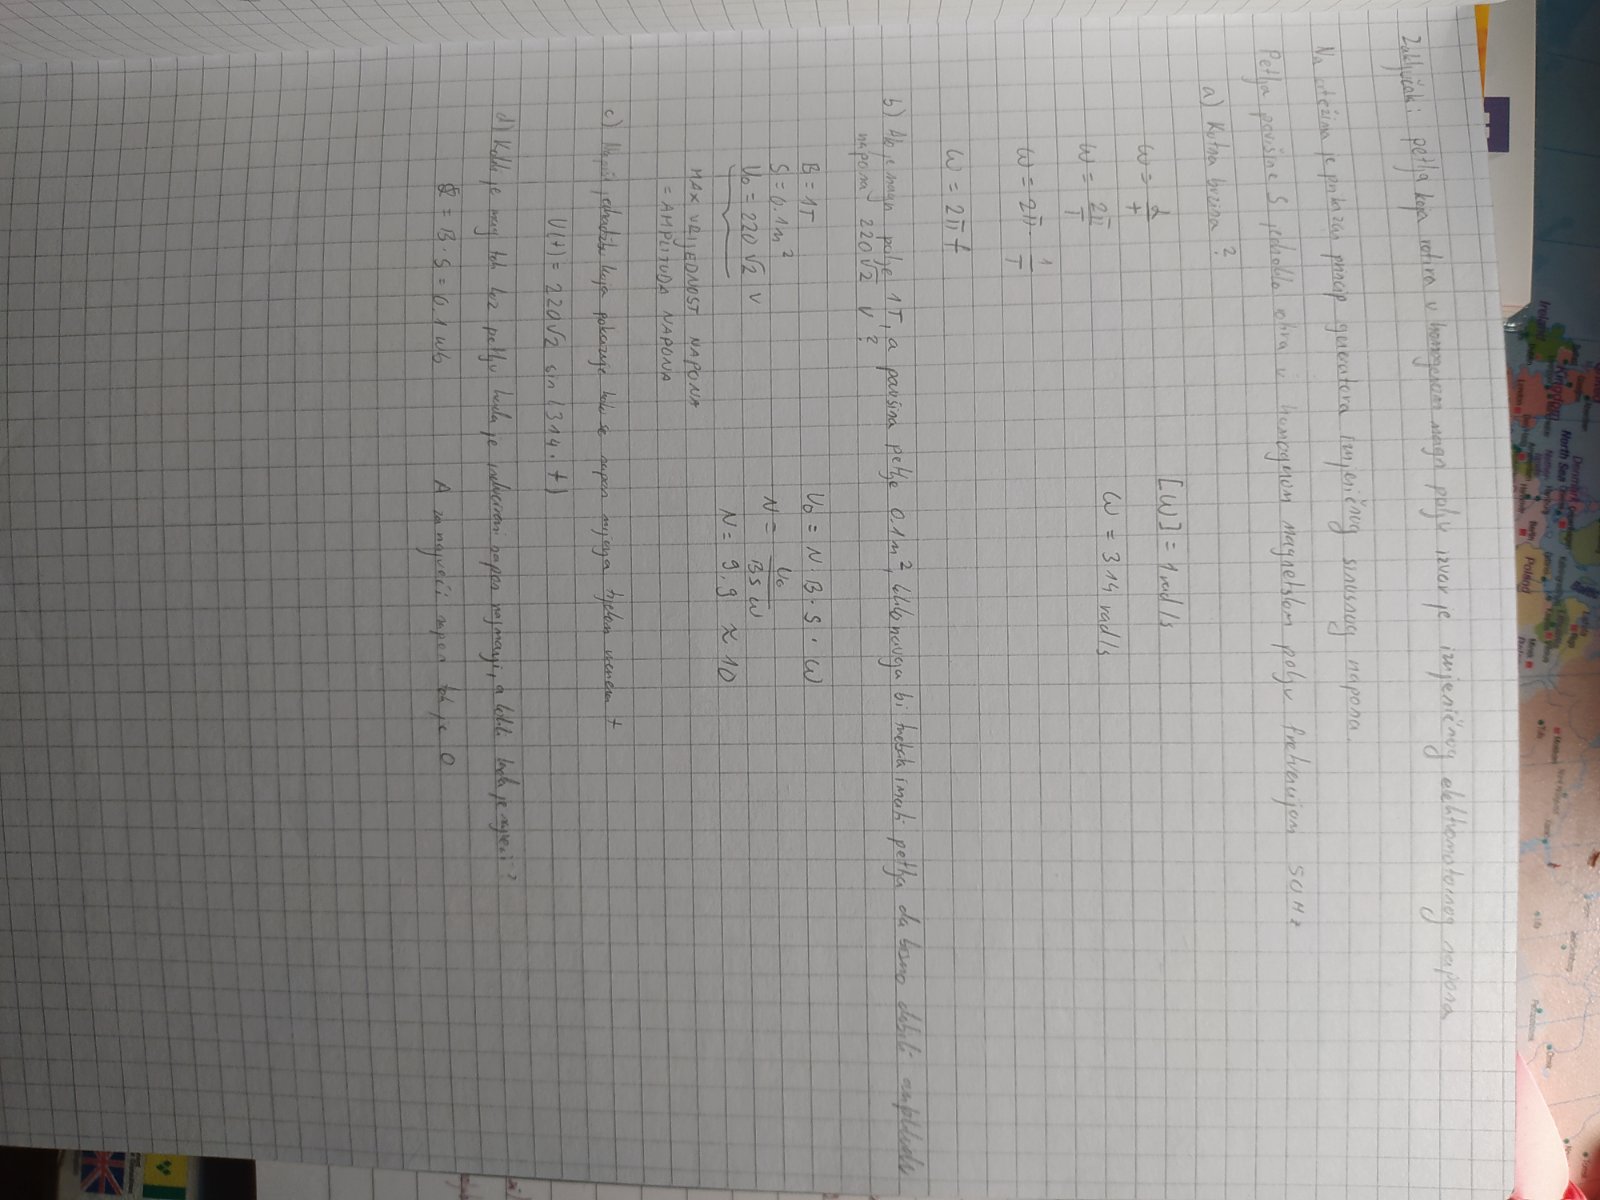 Ireland
Kingdom
North Sea
Denmark
Poland
London
Berlin
Minsk
Riga
Omsk
Zaključak: petlja koja rotira u homogenom magn polju izvor je izmjeničnog elektromotornog napona
Na crtežima je prikazan princip generatora izmjeničnog sinusnog napona.
Petlja površine S jednoliko rotira u homogenom magnetskom polju frekvencijom 50 Hz
a) Kutna brzina ?
ω = α/t
[ω] = 1 rad/s
ω = 2π/T
ω = 314 rad/s
ω = 2π · 1/T
ω = 2πf
b) Ako je magn polje 1T, a površina petlje 0.1m², koliko navoja bi trebala imati petlja da bismo dobili amplitudu
napona 220√2 V ?
B = 1T
U₀ = N · B · S · ω
S = 0.1m²
N = U₀/BSω
U₀ = 220√2 V
N = 9.9 ≈ 10
MAX VRIJEDNOST NAPONA
= AMPLITUDA NAPONA
c) jednadžbu koja pokazuje kako se napon mijenja tijekom vremena t
U(t) = 220√2 sin(314 · t)
d) Koliki je mag tok kroz petlju kada je inducirani napon najmanji, a koliki kada je najveći?
Φ = B · S = 0.1 Wb
A za najveći napon tok je 0